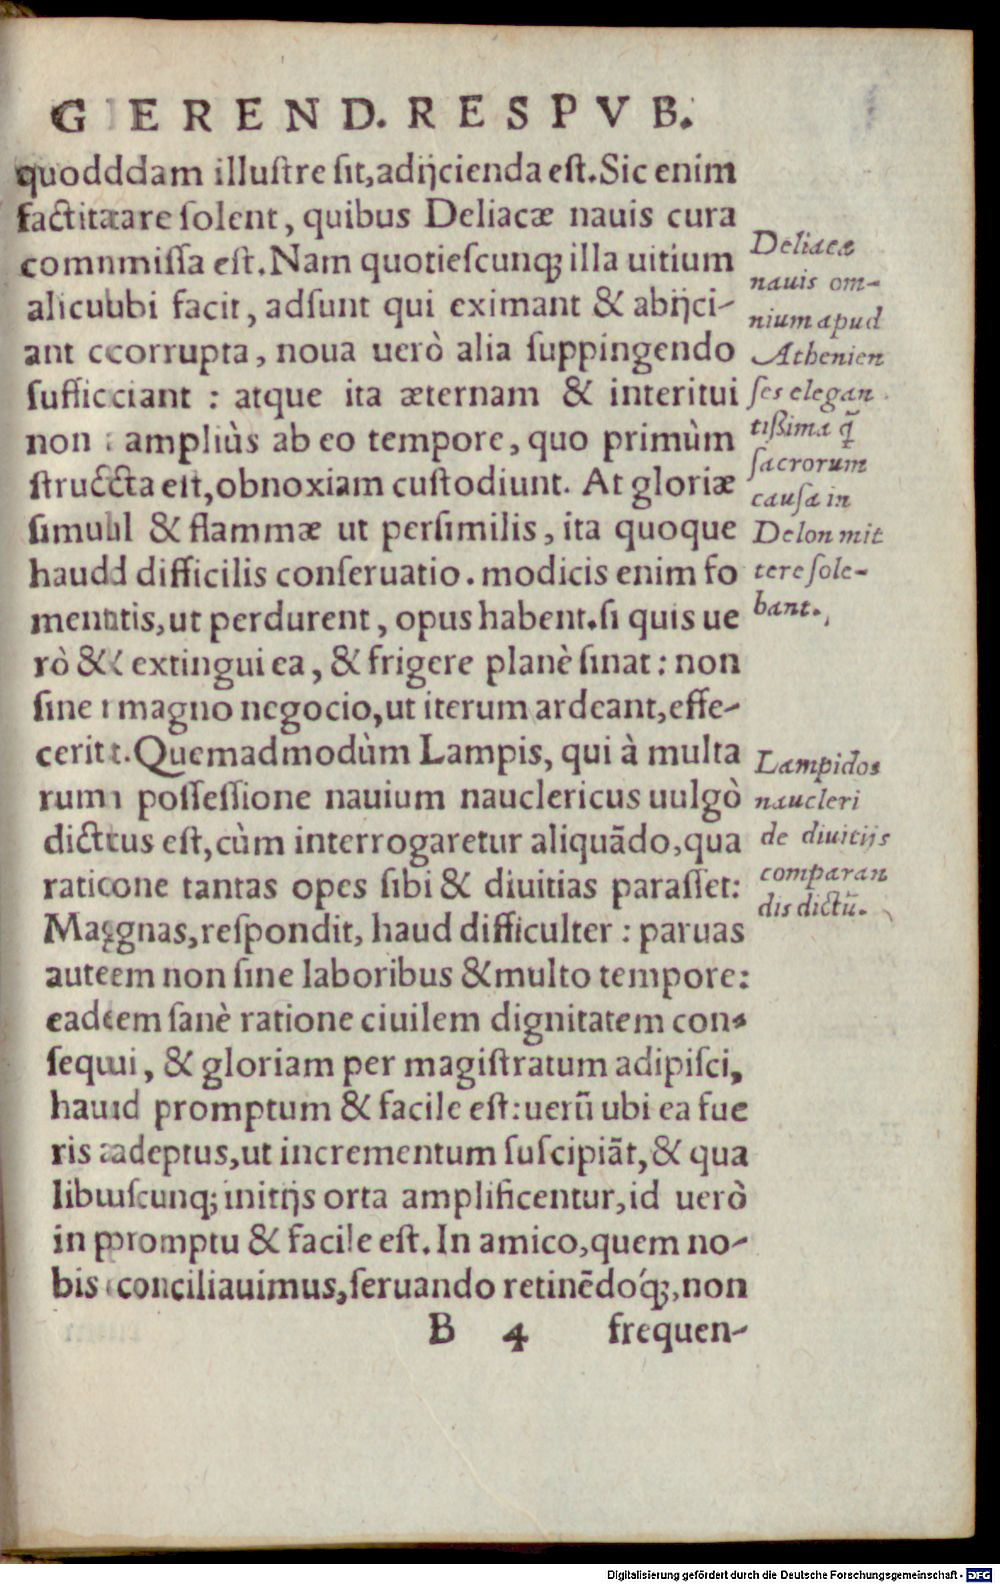 GEREND. RESPVB.
quodddam illuſtre ſit, adijcienda eſt. Sic enim
factitaare ſolent, quibus Deliacæ nauis cura
commmiſſa eſt. Nam quotieſcunq; illa uitium
alicuubi facit, adſunt qui eximant & abijci-
ant ccorrupta, noua uerò alia ſuppingendo
ſufficciant : atque ita æternam & interitui
non ampliùs ab eo tempore, quo primùm
ſtruccta eſt, obnoxiam cuſtodiunt. At gloriæ
ſimuul & flammæ ut perſimilis, ita quoque
haudd difficilis conſeruatio. modicis enim fo
menntis, ut perdurent, opus habent. ſi quis ue
rò && extingui ea, & frigere planè ſinat : non
ſine magno negocio, ut iterum ardeant, effe-
ceritt. Quemadmodùm Lampis, qui à multa
rumm poſſeſſione nauium nauclericus uulgò
dicttus eſt, cùm interrogaretur aliquādo, qua
raticone tantas opes ſibi & diuitias paraſſet:
Maggnas, reſpondit, haud difficulter : paruas
auteem non ſine laboribus & multo tempore:
eadeem ſanè ratione ciuilem dignitatem con-
ſequui, & gloriam per magiſtratum adipiſci,
hauud promptum & facile eſt: uerū ubi ea fue
ris aadeptus, ut incrementum ſuſcipiāt, & qua
libuuſcunq; initijs orta amplificentur, id uerò
in ppromptu & facile eſt. In amico, quem no-
bis conciliauimus, ſeruando retinēdoq́;, non
B 4 frequen-
Deliacæ
nauis om-
nium apud
Athenien
ſes elegan
tißima q̃
ſacrorum
cauſa in
Delon mit
tere ſole-
bant.
Lampidos
naucleri
de diuitijs
comparan
dis dictū.
Digitalisierung gefördert durch die Deutsche Forschungsgemeinschaft - DFG